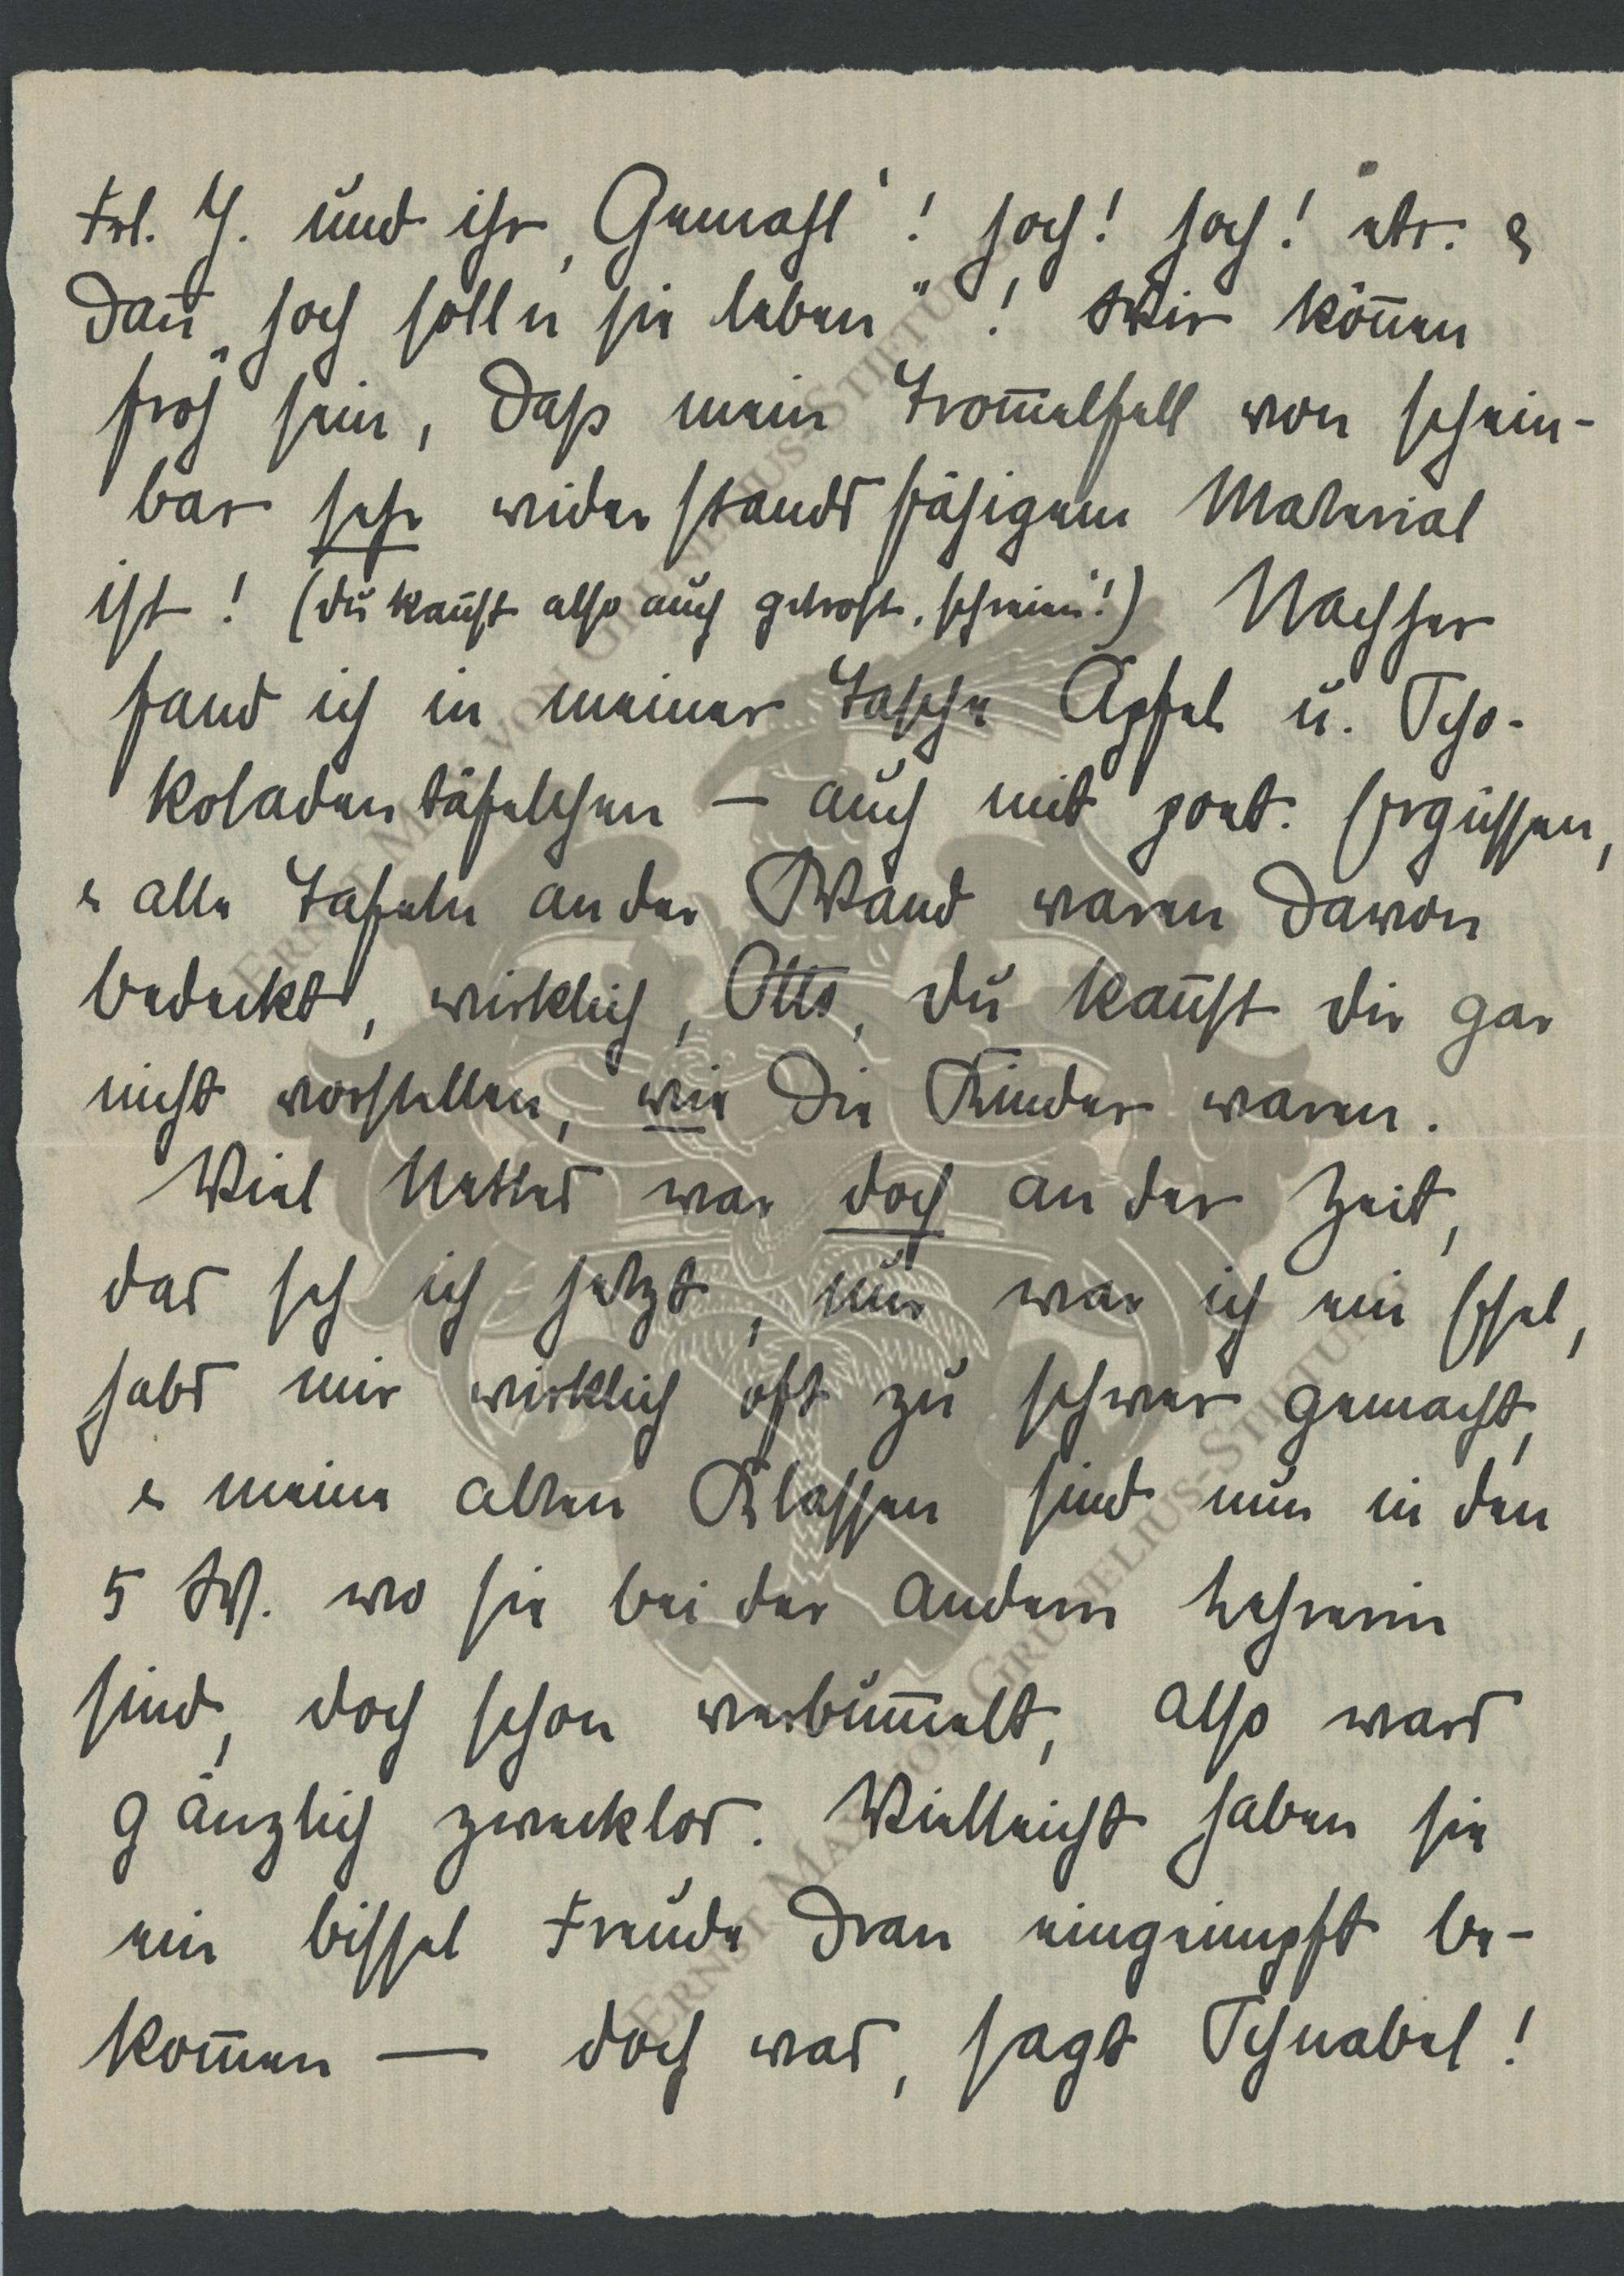 Frl. Y. und ihr ‚Gemahl‘! hoch! hoch! etc. &
dan̅ „hoch soll'n sie leben“! Wir kön̅en
froh sein, daß mein Trom̅elfell von schein-
bar sehr widerstandsfähigem Material
ist! (du kan̅st also auch getrost ‚schreien‘!) Nachher
fand ich in meiner Tasche Äpfel u. Scho-
koladentäfelchen — auch mit poet. Ergüssen,
& alle Tafeln an der Wand waren davon
bedeckt, wirklich, Otto, du kan̅st dir gar
nicht vorstellen, wie die Kinder waren.
Viel Nettes war doch an der Zeit,
das seh ich jetzt, nur war ich ein Esel,
habs mir wirklich oft zu schwer gemacht,
& meine alten Klassen sind nun in den
5 W. wo sie bei der andern Lehrerin
sind, doch schon verbum̅elt, also wars
gänzlich zwecklos. Vielleicht haben sie
ein bissel Freude dran eingeimpft be-
kom̅en — doch was, sagt Schnabel!
ERNST MAX VON GRUNELIUS-STIFTUNG
ERNST MAX VON GRUNELIUS-STIFTUNG